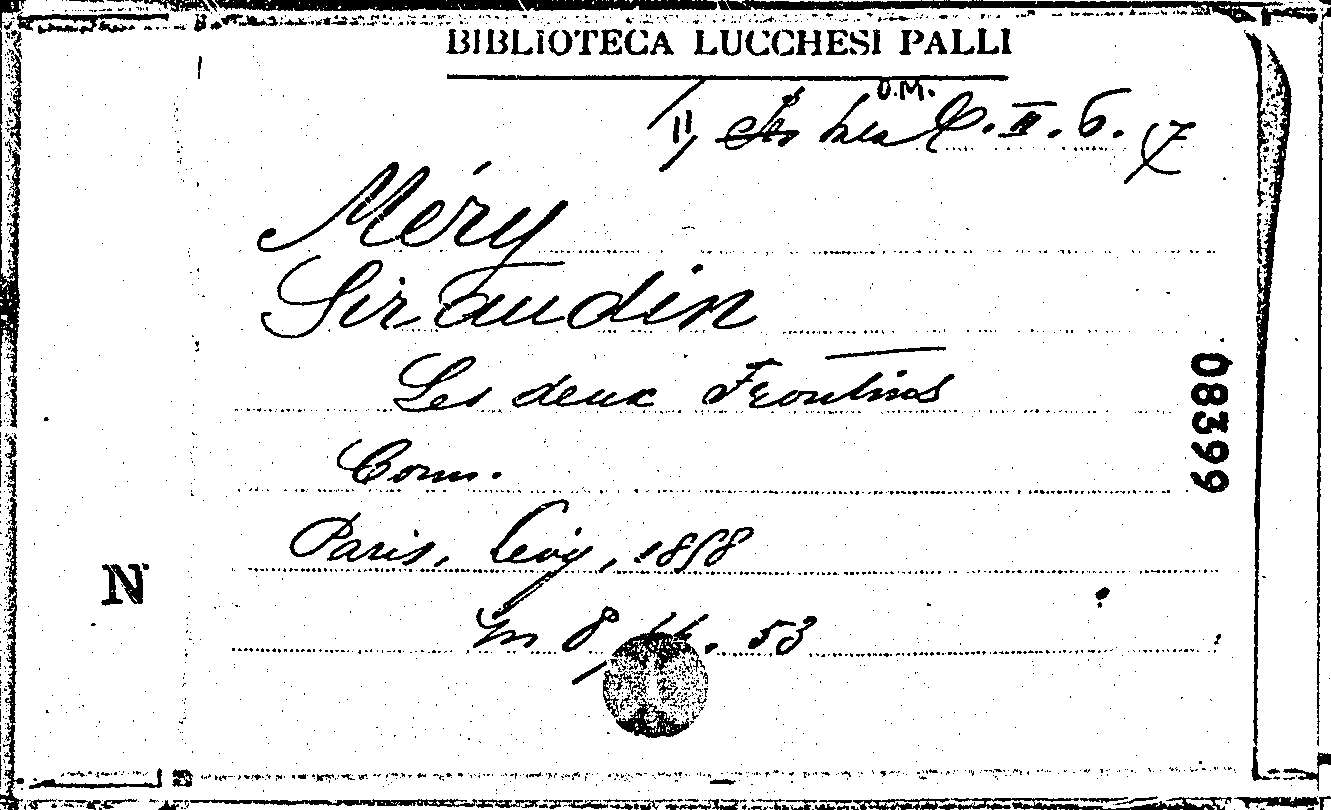 BIBLIOTECA LUCCHESI PALLI
O.M.
II. 6. 7
Méry
Siraudin
Les deux Frontins
Com.
Paris, Lévy, 1858
N
in 8, 53
08399